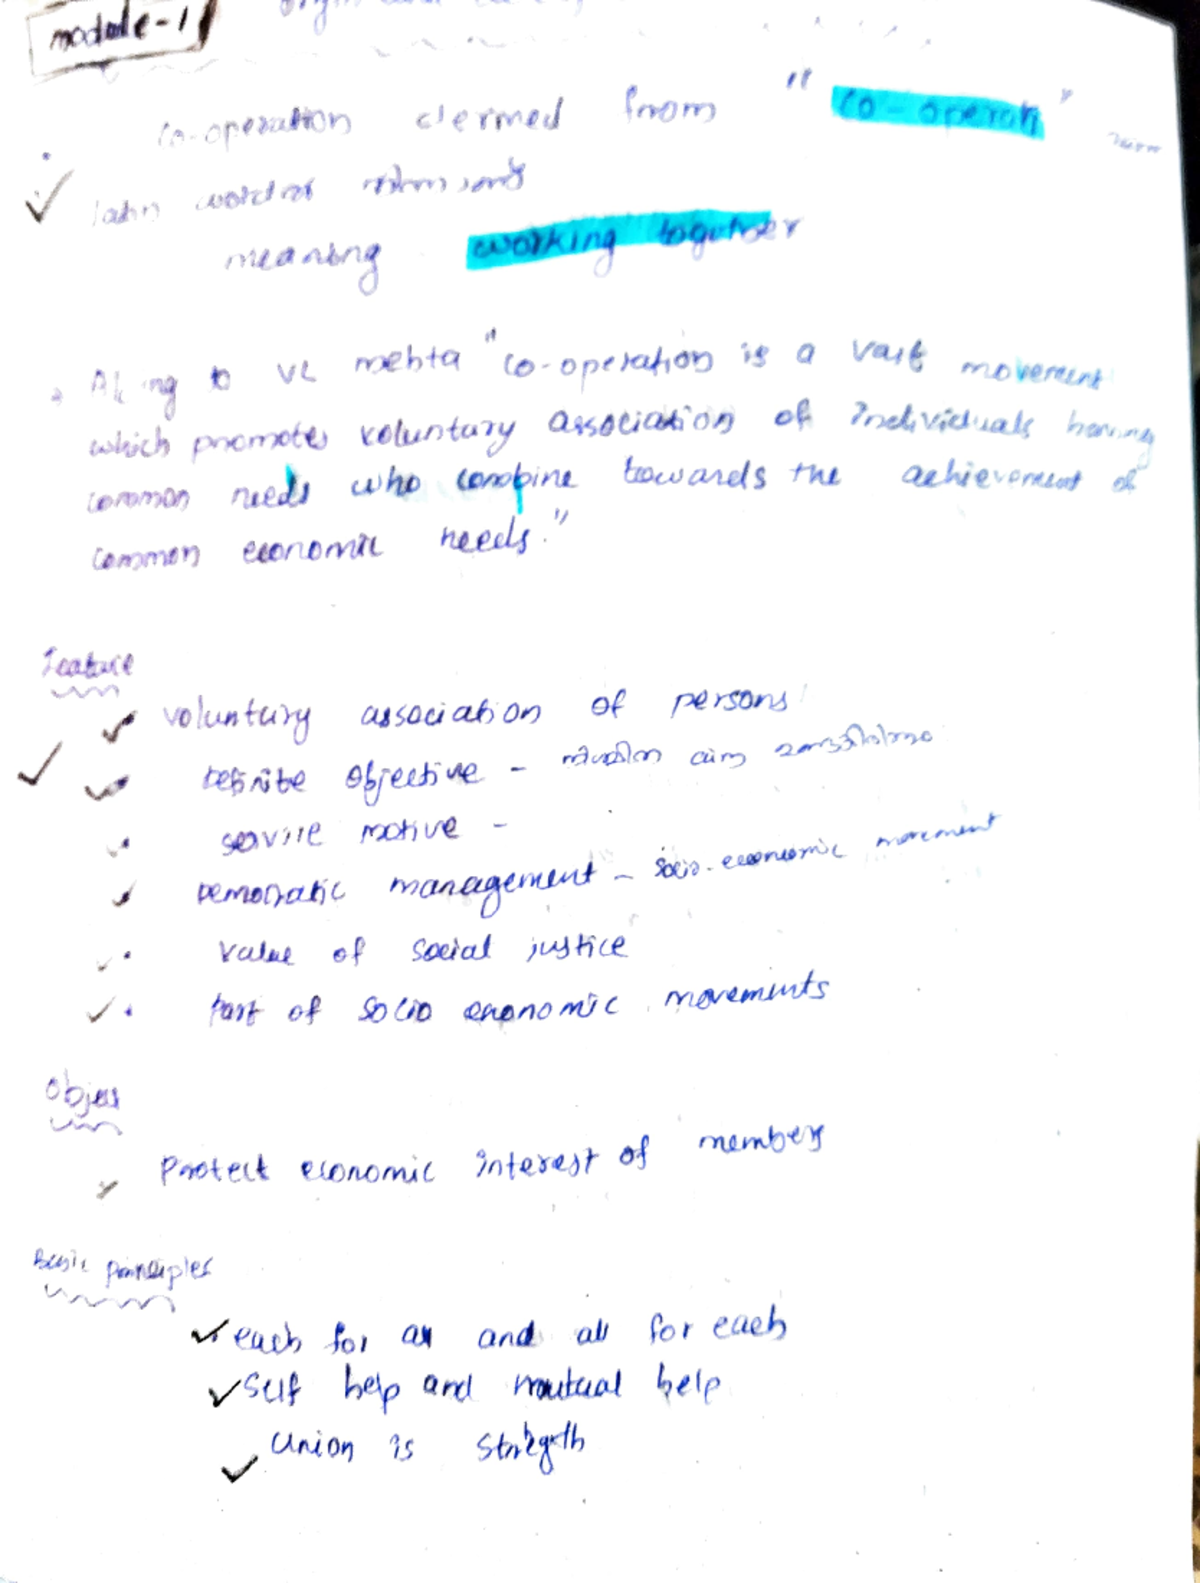 module-1
Co-operation derived from "co-operati"
latin word
meaning working together
Al ng to VL mehta "co-operation is a vast movement
which promotes voluntary association of individuals having
common needs who combine towards the achievement of
common economic needs."
Feature
voluntary association of persons
Definite objective -
service motive -
Democratic management - socio-economic movement
value of social justice
Part of socio economic movements
Objes
Protect economic interest of members
Basic principles
each for all and all for each
Self help and mutual help
Union is strength